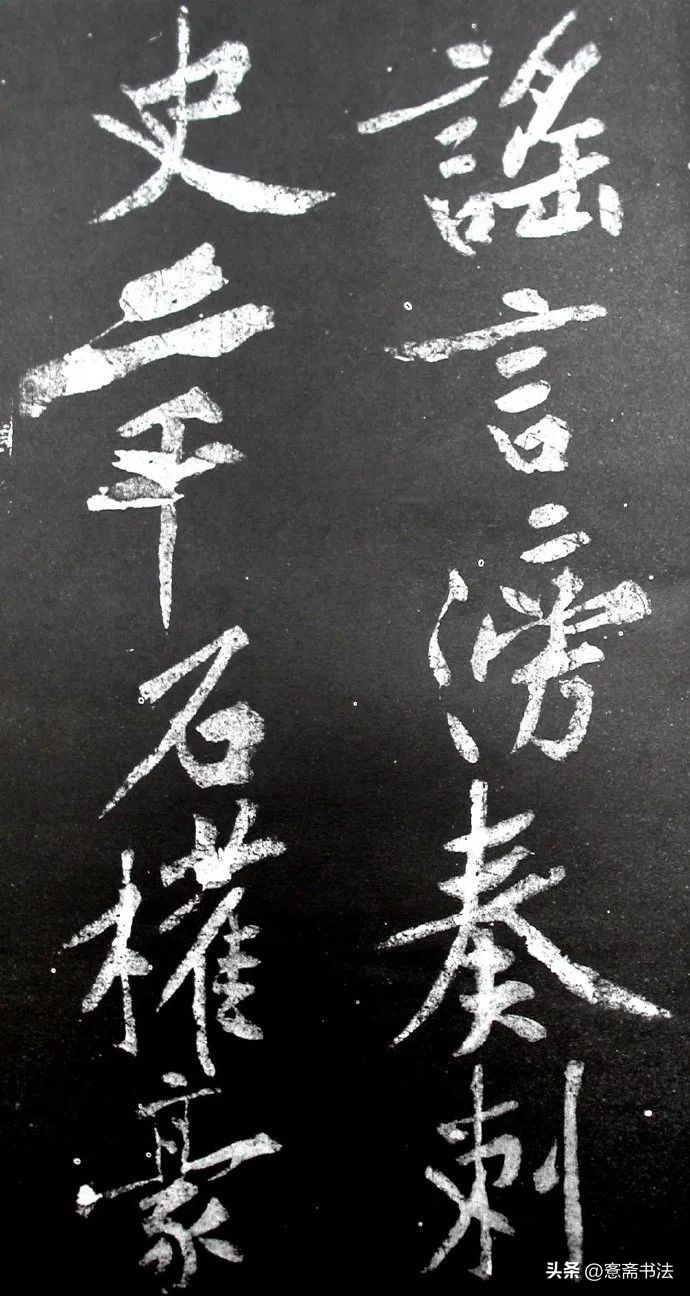 謠言滂奏刺
史二千石權豪
头条 @愙斋书法